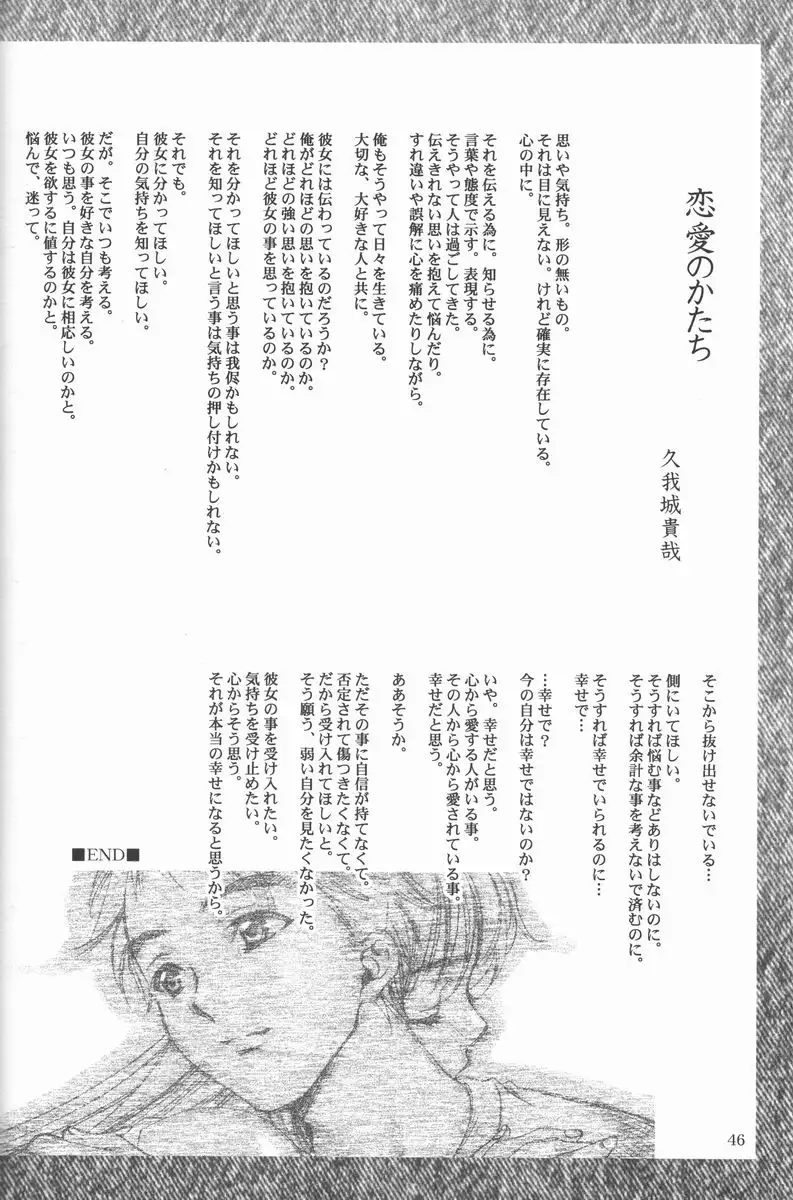 恋愛のかたち
久我城貴哉
思いや気持ち。形の無いもの。
それは目に見えない。けれど確実に存在している。
心の中に。
それを伝える為に。知らせる為に。
言葉や態度で示す。表現する。
そうやって人は過ごしてきた。
伝えきれない思いを抱えて悩んだり。
すれ違いや誤解に心を痛めたりしながら。
俺もそうやって日々を生きている。
大切な、大好きな人と共に。
彼女には伝わっているのだろうか?
俺がどれほどの思いを抱いているのか。
どれほどの強い思いを抱いているのか。
どれほど彼女の事を思っているのか。
それを分かってほしいと思う事は我侭かもしれない。
それを知ってほしいと言う事は気持ちの押し付けかもしれない。
それでも。
彼女に分かってほしい。
自分の気持ちを知ってほしい。
だが。そこでいつも考える。
彼女の事を好きな自分を考える。
いつも思う。自分は彼女に相応しいのかと。
彼女を欲するに値するのかと。
悩んで、迷って。
そこから抜け出せないでいる…
側にいてほしい。
そうすれば悩む事などありはしないのに。
そうすれば余計な事を考えないで済むのに。
そうすれば幸せでいられるのに…
幸せで…
…幸せで?
今の自分は幸せではないのか?
いや。幸せだと思う。
心から愛する人がいる事。
その人から心から愛されている事。
幸せだと思う。
ああそうか。
ただその事に自信が持てなくて。
否定されて傷つきたくなくて。
だから受け入れてほしいと。
そう願う、弱い自分を見たくなかった。
彼女の事を受け入れたい。
気持ちを受け止めたい。
心からそう思う。
それが本当の幸せになると思うから。
■END■
46